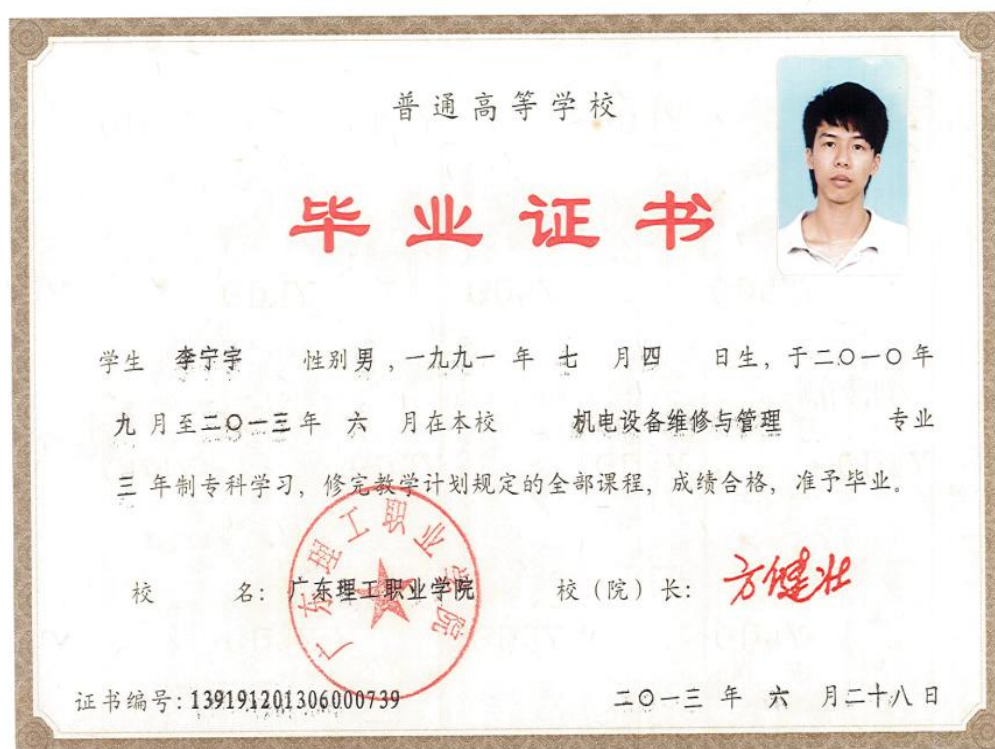 普通高等学校
毕业证书
学生 李宁宇 性别男，一九九一 年 七 月四 日生，于二〇一〇年
九 月至二〇一三年 六 月在本校 机电设备维修与管理 专业
三 年制专科学习，修完教学计划规定的全部课程，成绩合格，准予毕业。
广东理工职业学院
校 名：广东理工职业学院 校（院）长：方健壮
证书编号：139191201306000739 二〇一三 年 六 月二十八日